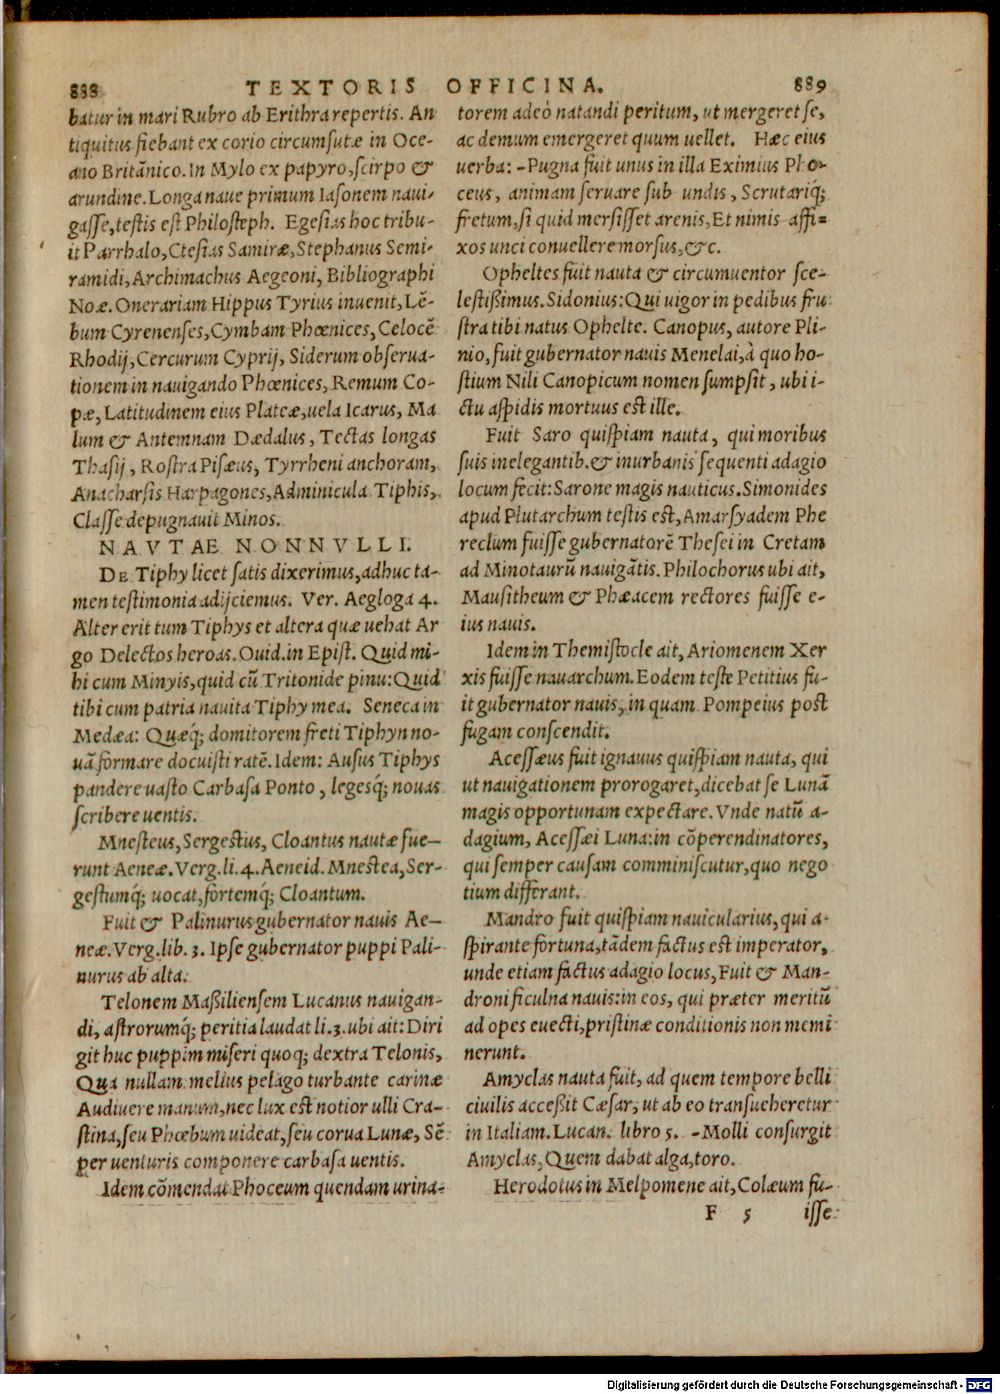 888 TEXTORIS OFFICINA. 889
batur in mari Rubro ab Erithra repertis. An
tiquitus fiebant ex corio circumsutæ in Oce-
ano Britãnico. In Mylo ex papyro, scirpo &
arundine. Longa naue primum Iasonem naui-
gasse, testis est Philosteph. Egesias hoc tribu-
it Parrhalo, Ctesias Samiræ, Stephanus Semi-
ramidi, Archimachus Aegeoni, Bibliographi
Noæ. Onerariam Hippus Tyrius inuenit, Lẽ-
bum Cyrenenses, Cymbam Phœnices, Celocẽ
Rhodij, Cercurum Cyprij, Siderum obserua-
tionem in nauigando Phœnices, Remum Co-
pæ, Latitudinem eius Plateæ, uela Icarus, Ma
lum & Antemnam Dædalus, Tectas longas
Thasij, Rostra Pisæus, Tyrrheni anchoram,
Anacharsis Harpagones, Adminicula Tiphis,
Classe depugnauit Minos.
NAVTAE NONNVLLI.
DE Tiphy licet satis dixerimus, adhuc ta-
men testimonia adijciemus. Ver. Aegloga 4.
Alter erit tum Tiphys et altera quæ uehat Ar
go Delectos heroas. Ouid. in Epist. Quid mi-
hi cum Minyis, quid cũ Tritonide pinu: Quid
tibi cum patria nauita Tiphy mea. Seneca in
Medæa: Quæq; domitorem freti Tiphyn no-
uã formare docuisti ratẽ. Idem: Ausus Tiphys
pandere uasto Carbasa Ponto, legesq; nouas
scribere uentis.
Mnesteus, Sergestus, Cloantus nautæ fue-
runt Aeneæ. Verg. li. 4. Aeneid. Mnestea, Ser-
gestumq; uocat, fortemq; Cloantum.
Fuit & Palinurus gubernator nauis Ae-
neæ. Verg. lib. 3. Ipse gubernator puppi Pali-
nurus ab alta.
Telonem Maßiliensem Lucanus nauigan-
di, astrorumq; peritia laudat li. 3. ubi ait: Diri
git huc puppim miseri quoq; dextra Telonis,
Qua nullam melius pelago turbante carinæ
Audiuere manum, nec lux est notior ulli Cra-
stina, seu Phœbum uideat, seu corua Lunæ, Sẽ
per uenturis componere carbasa uentis.
Idem cõmendat Phoceum quendam urina-
torem adeò natandi peritum, ut mergeret se,
ac demum emergeret quum uellet. Hæc eius
uerba: -Pugna fuit unus in illa Eximius Pho-
ceus, animam seruare sub undis, Scrutariq;
fretum, si quid mersisset arenis, Et nimis affi=
xos unci conuellere morsus, &c.
Opheltes fuit nauta & circumuentor sce-
lestißimus. Sidonius: Qui uigor in pedibus fru
stra tibi natus Ophelte. Canopus, autore Pli-
nio, fuit gubernator nauis Menelai, à quo ho-
stium Nili Canopicum nomen sumpsit, ubi i-
ctu aspidis mortuus est ille.
Fuit Saro quispiam nauta, qui moribus
suis inelegantib. & inurbanis sequenti adagio
locum fecit: Sarone magis nauticus. Simonides
apud Plutarchum testis est, Amarsyadem Phe
reclum fuisse gubernatorẽ Thesei in Cretam
ad Minotaurũ nauigãtis. Philochorus ubi ait,
Mausitheum & Phæacem rectores fuisse e-
ius nauis.
Idem in Themistocle ait, Ariomenem Xer
xis fuisse nauarchum. Eodem teste Petitius fu-
it gubernator nauis, in quam Pompeius post
fugam conscendit.
Acessæus fuit ignauus quispiam nauta, qui
ut nauigationem prorogaret, dicebat se Lunã
magis opportunam expectare. Vnde natũ a-
dagium, Acessæi Luna: in cõperendinatores,
qui semper causam comminiscutur, quo nego
tium differant.
Mandro fuit quispiam nauicularius, qui a-
spirante fortuna, tãdem factus est imperator,
unde etiam factus adagio locus, Fuit & Man-
droni ficulna nauis: in eos, qui præter meritũ
ad opes euecti, pristinæ conditionis non memi
nerunt.
Amyclas nauta fuit, ad quem tempore belli
ciuilis acceßit Cæsar, ut ab eo transueheretur
in Italiam. Lucan. libro 5. -Molli consurgit
Amyclas, Quem dabat alga, toro.
Herodotus in Melpomene ait, Colæum fu-
F 5 isse
Digitalisierung gefördert durch die Deutsche Forschungsgemeinschaft - DFG